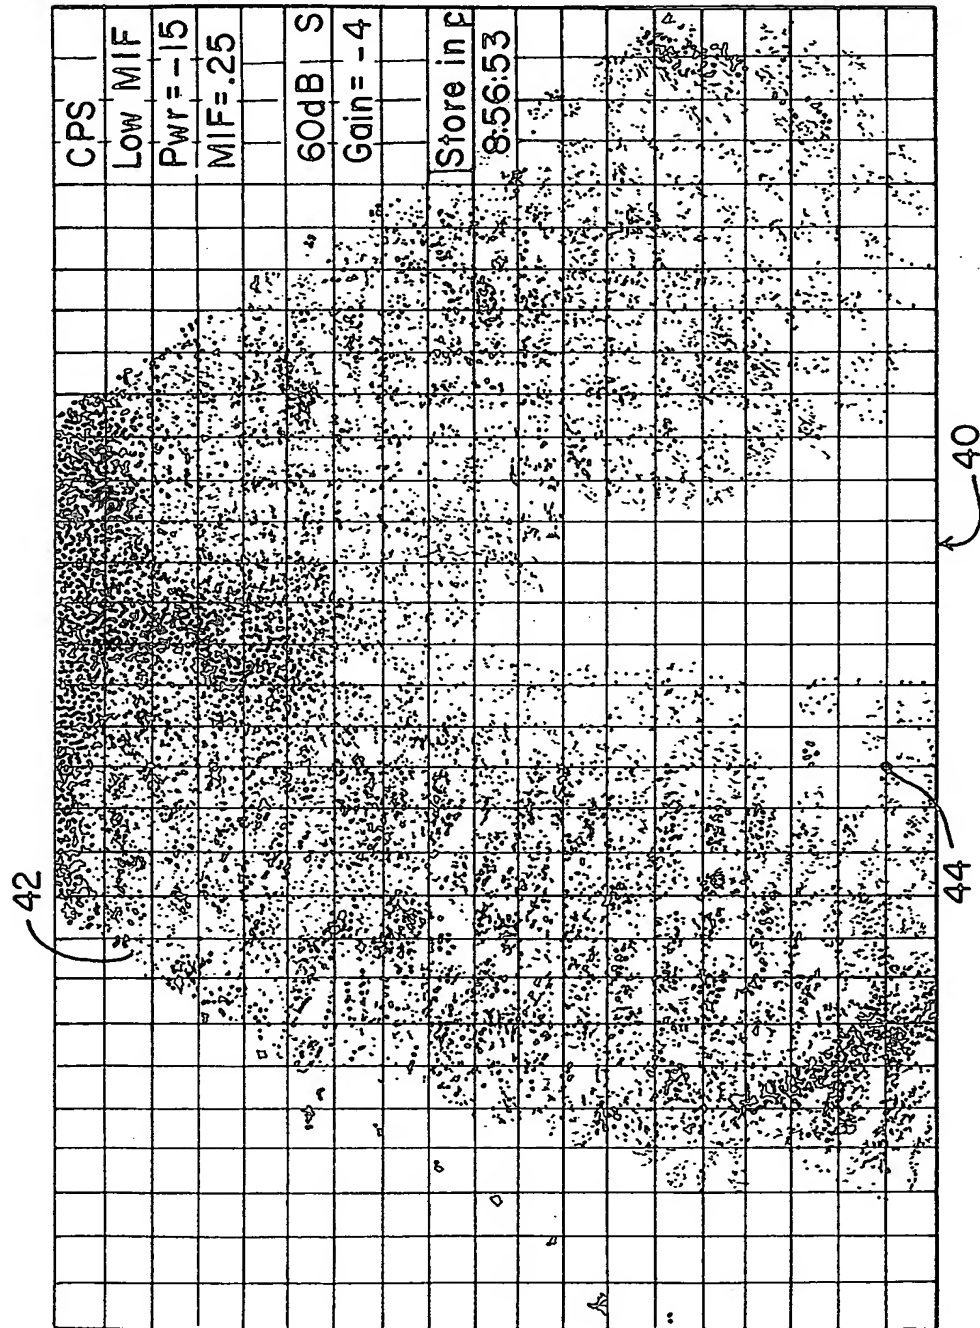 CPS
Low MIF
Pwr=-15
MIF=.25
60dB S
Gain=-4
Store in p
8:56:53
42
44
40